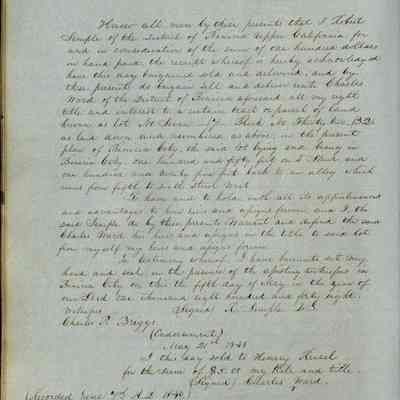 Know all men by these presents that I Robert
Semple of the District of Benicia Upper California for
and in consideration of the sum of one hundred dollars
in hand paid the receipt whereof is hereby acknowledged
have this day bargained sold and delivered and by
these presents do bargain sell and deliver unto Charles
Ward of the District of Benicia aforesaid all my right
title and interest to a certain tract or parcel of land
known as Lot No. Block No. Thirty two, (32)
as laid down and numbered as above, in the present
plan of Benicia City, the said lot lying and being in
Benicia City, one hundred and fifty feet on I Street and
one hundred and twenty five feet back to an alley which
runs from fifth to sixth Street West.
To have and to hold with all its appurtenances
and advantages to heirs and assigns forever and I the
said Semple do by these presents Warrant and defend the said
Charles Ward his heirs and assigns in the title to said lot
for myself my heirs and assigns forever.
In testimony whereof I have hereunto set my
hand and seal in the presence of the witnesses in
Benicia City on this the fifth day of May in the year of
our Lord one thousand eight hundred and forty eight.
Witnesses (Signed) R. Semple L.S.
Charles R. Braggs
(Endorsement)
May 21st 1848
I this day sold to Henry
for the sum of my title.
(Signed) Charles Ward.
(Recorded June A.D. 1848)